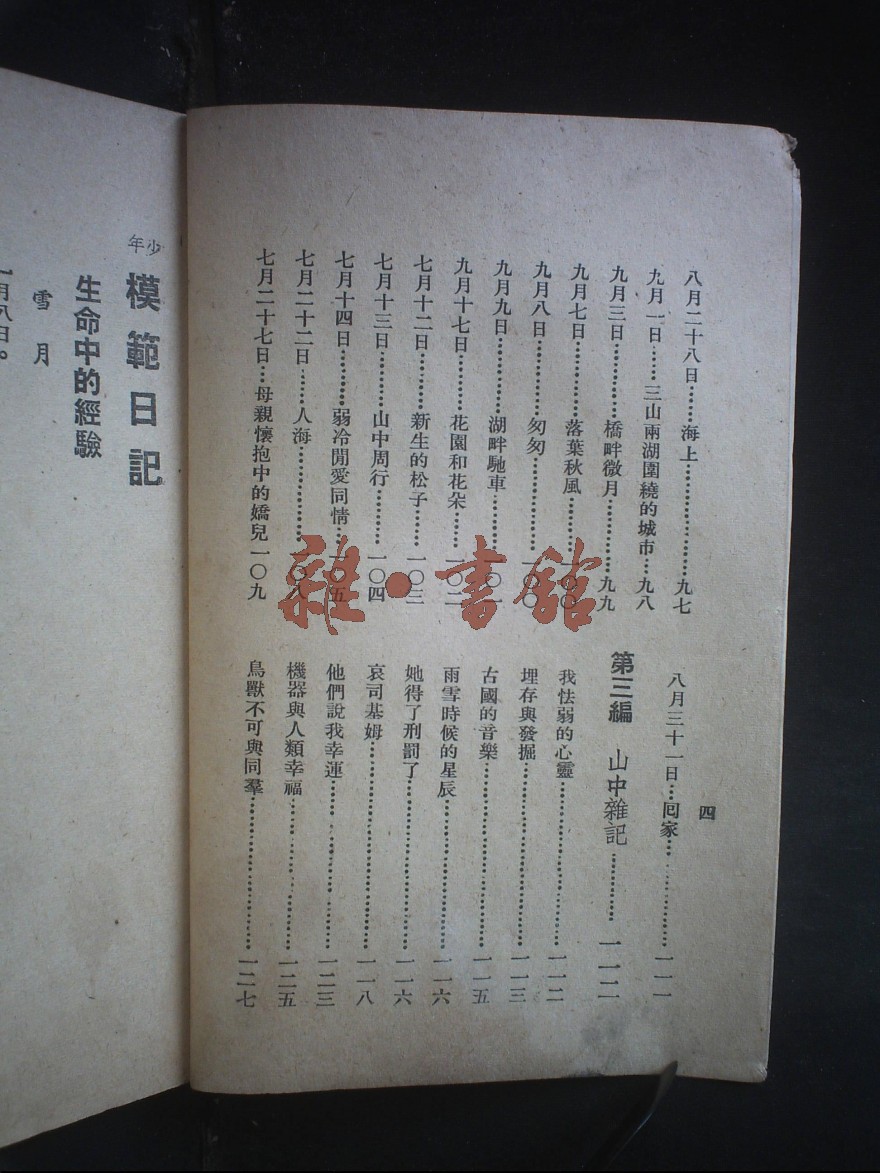 八月二十八日……海上………………九七
九月一日……三山兩湖圍繞的城市…九八
九月三日………橋畔微月………九九
九月七日………落葉秋風………一〇〇
九月八日………匆匆………一〇〇
九月九日………湖畔馳車………一〇一
九月十七日………花園和花朵………一〇二
七月十二日………新生的松子………一〇三
七月十三日………山中周行………一〇四
七月十四日………弱冷閒愛同情……一〇五
七月二十二日……人海………………一〇八
七月二十七日…母親懷抱中的嬌兒一〇九
四
八月三十一日…回家………………一一一
第三編 山中雜記………一一二
我怯弱的心靈………………一一二
埋存與發掘………………一一三
古國的音樂………………一一五
雨雪時候的星辰………………一一六
她得了刑罰了………………一一六
哀司基姆………………一一八
他們說我幸運………………一二三
機器與人類幸福………………一二五
鳥獸不可與同羣………………一二七
少年 模範日記
生命中的經驗
雪月
一月八日。
雜·書館